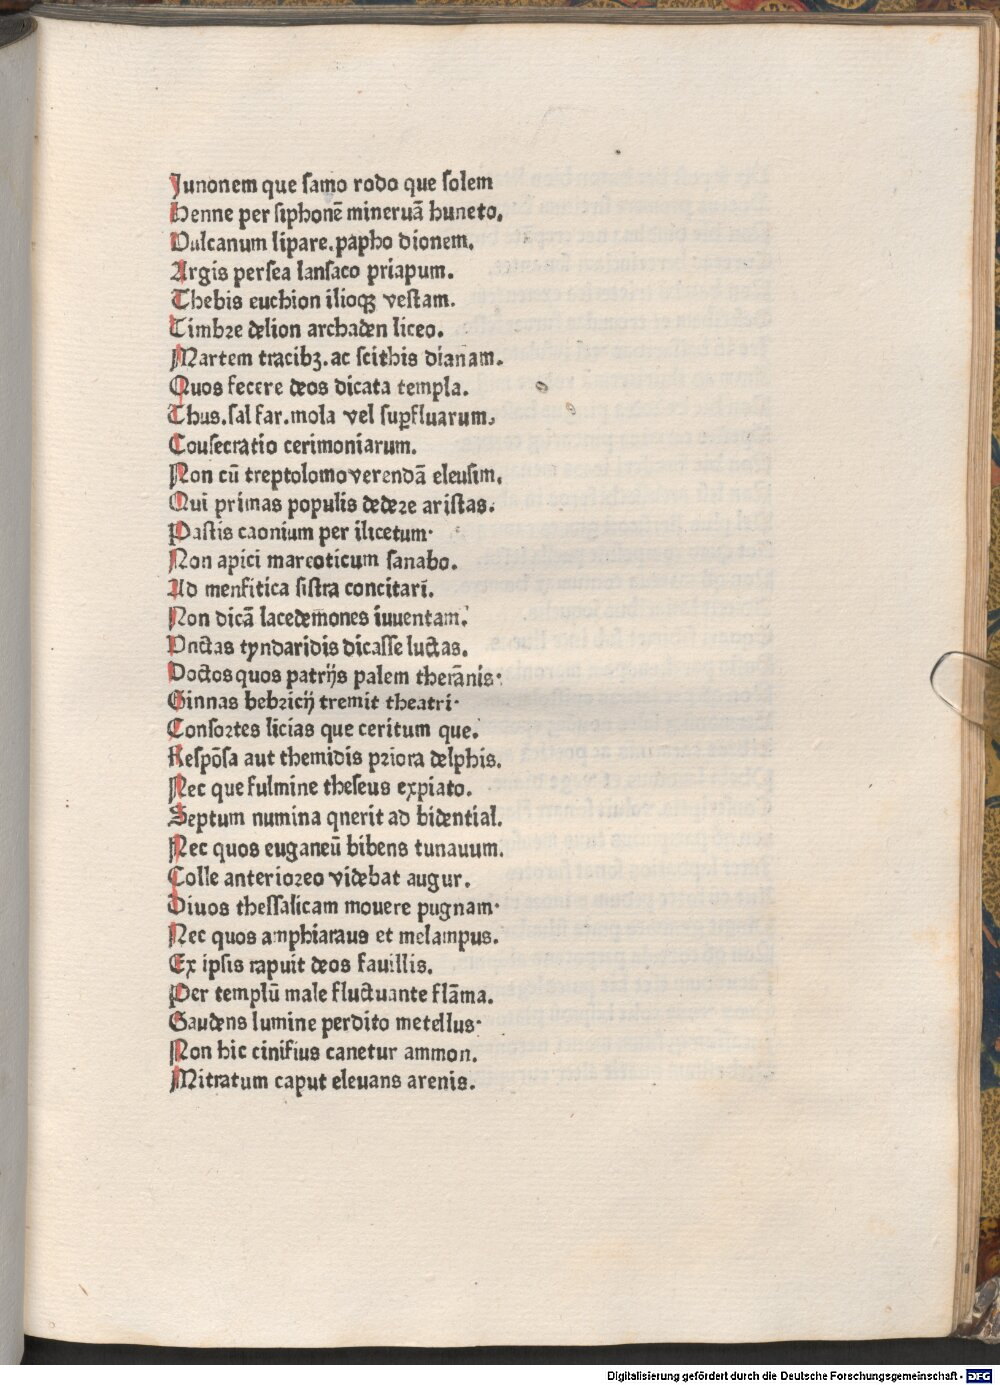 Junonem que samo rodo que solem
Henne per siphonē mineruā huneto.
Vulcanum lipare. papho dionem.
Argis persea lansaco priapum.
Thebis euchion ilioqꝫ vestam.
Timbre delion archaden liceo.
Martem tracibꝫ. ac scithis dianam.
Quos fecere deos dicata templa.
Thus. sal far. mola vel suꝑfluarum.
Cousecratio cerimoniarum.
Non cū treptolomo verendā eleusim.
Qui primas populis dedere aristas.
Pastis caonium per ilicetum.
Non apici mareoticum sanabo.
Ad menfitica sistra concitari.
Non dicā lacedemones iuuentam.
Vnctas tyndaridis dicasse luctas.
Doctos quos patrijs palem therānis.
Ginnas bebricij tremit theatri.
Consortes licias que ceritum que.
Respōsa aut themidis priora delphis.
Nec que fulmine theseus expiato.
Septum numina qnerit ad bidential.
Nec quos euganeū bibens tunauum.
Colle anterioreo videbat augur.
Diuos thessalicam mouere pugnam.
Nec quos amphiaraus et melampus.
Ex ipsis rapuit deos fauillis.
Per templū male fluctuante flāma.
Gaudens lumine perdito metellus.
Non hic cinifius canetur ammon.
Mitratum caput eleuans arenis.
Digitalisierung gefördert durch die Deutsche Forschungsgemeinschaft - DFG